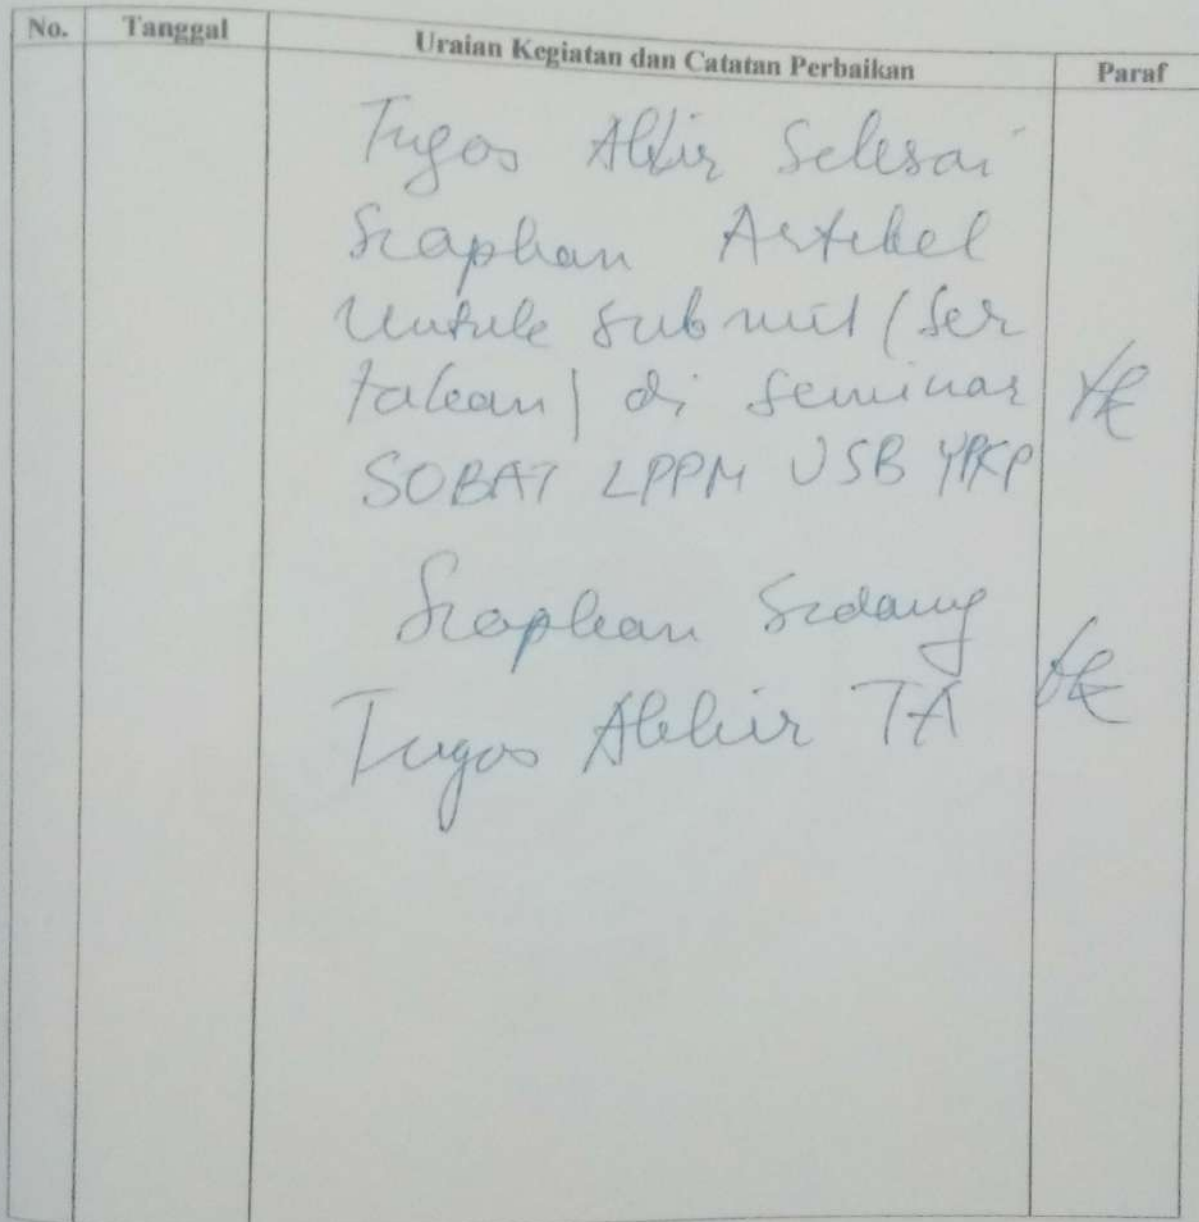 No. Tanggal Uraian Kegiatan dan Catatan Perbaikan Paraf
Tugas Akhir Selesai
Siapkan Artikel
Untuk submit (ser
takan) di seminar
SOBAT LPPM USB YPKP
Siapkan Sidang
Tugas Akhir TA